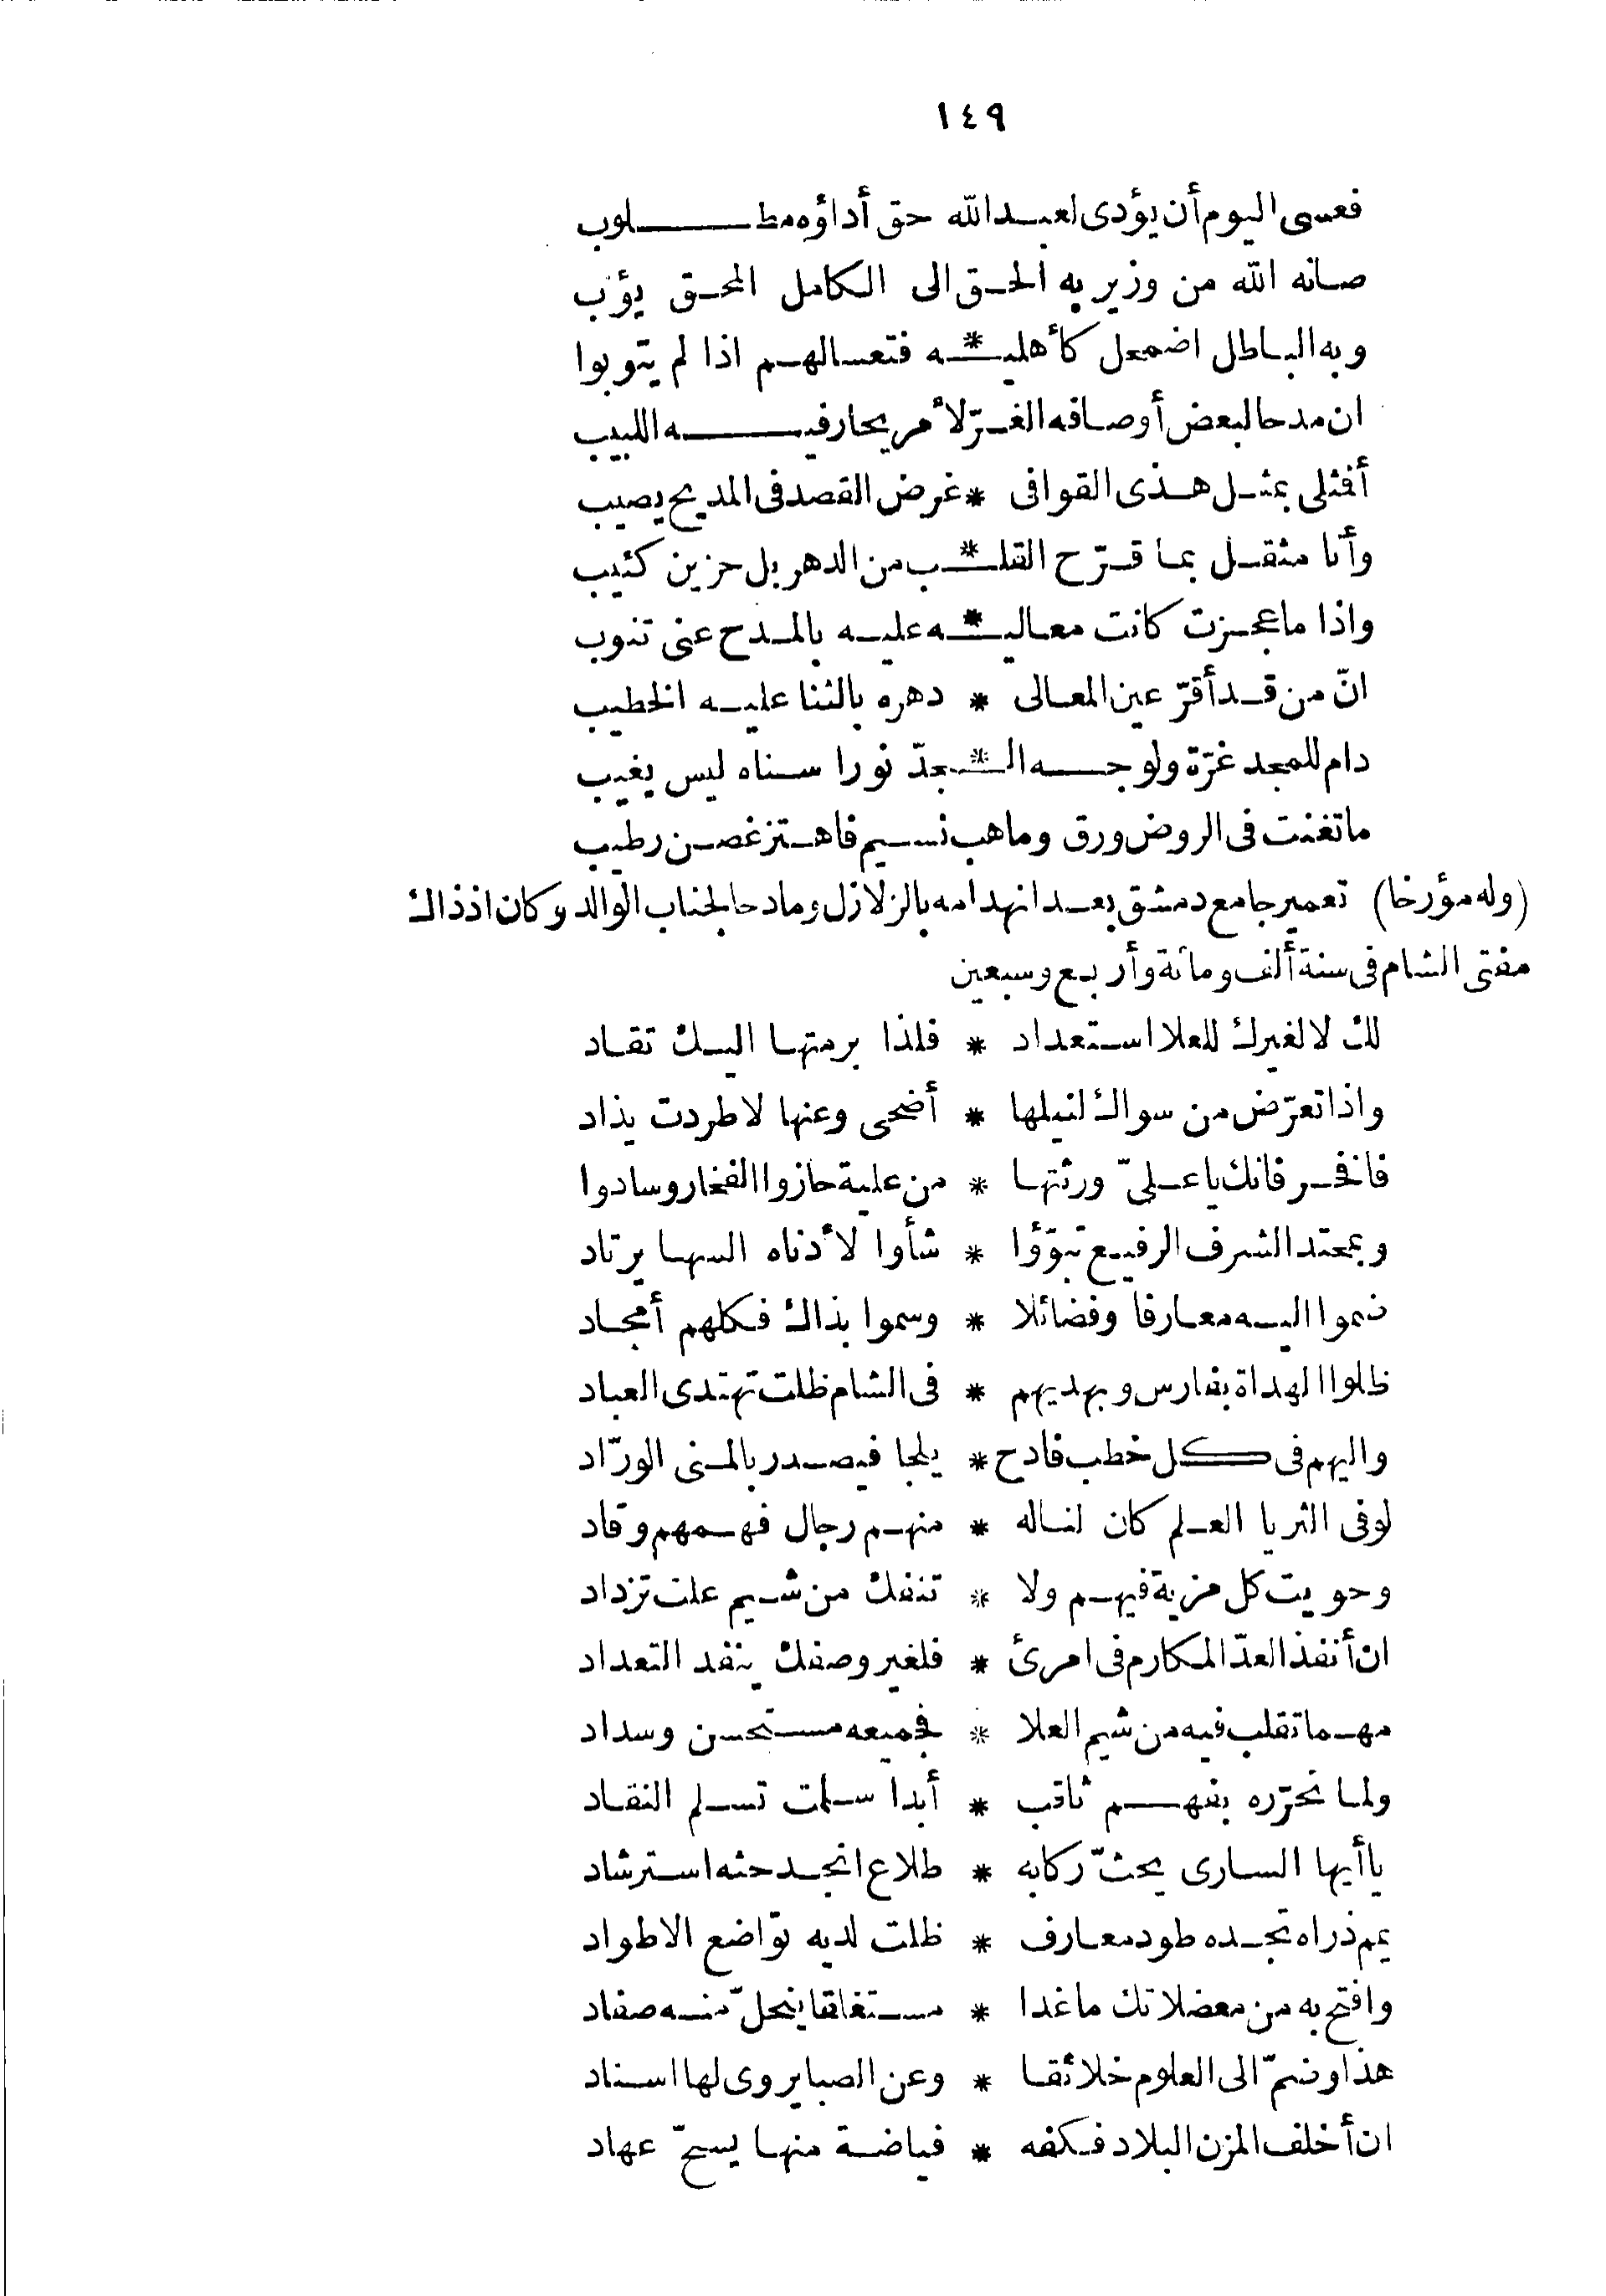 ١٤٩
فعسى اليوم أن يؤدى لعبد الله حق أداؤه مطلوب
صانه الله من وزير به الحق الى الكامل المحق يؤب
وبه الباطل اضمحل كأهليـ * ـه فتعسا لهم اذا لم يتوبوا
ان مدحا لبعض أوصافه الغرّ لأمر يحار فيه اللبيب
أفثلى بمثل هذى القوافى * غرض القصد فى المديح يصيب
وأنا مثقل بما قرّح القلـ * ـب من الدهر بل حزين كئيب
واذا ما عجزت كانت معاليـ * ـه عليه بالمدح عنى تنوب
انّ من قد أقرّ عين المعالى * دهره بالثنا عليه الخطيب
دام للمجد غرّة ولوجه الـ * ـجدّ نورا سناه ليس يغيب
ما تغنت فى الروض ورق وما هب نسيم فاهتز غصن رطيب
(وله مؤرخا) تعمير جامع دمشق بعد انهدامه بالزلازل ومادحا لجناب الوالد وكان اذ ذاك
مفتى الشام فى سنة ألف ومائة وأربع وسبعين
لك لا لغيرك للعلا استعداد * فلذا برمتها اليك تقاد
واذا تعرّض من سواك لنيلها * أضحى وعنها لا طردت يذاد
فافخر فانك يا علىّ ورثتها * من علية حازوا الفخار وسادوا
وبمحتد الشرف الرفيع تبوّؤا * شأوا لأدناه السها يرتاد
ضموا اليه معارفا وفضائلا * وسموا بذاك فكلهم أمجاد
ظلوا الهداة بفارس وبهديهم * فى الشام ظلت تهتدى العباد
واليهم فى كل خطب فادح * يلجا فيصدر بالمنى الورّاد
لو فى الثريا العلم كان لناله * منهم رجال فهمهم وقاد
وحويت كل مزية فيهم ولا * تنفك من شيم علت تزداد
ان أنفذ العدّ المكارم فى امرئ * فلغير وصفك ينفد التعداد
مهما تقلب فيه من شيم العلا * فجميعه مستحسن وسداد
ولما تحرّره بفهم ثاقب * أبدا سلمت تسلم النقاد
يا أيها السارى يحثّ ركابه * طلاع انجد حثه استرشاد
يمم ذراه تجده طود معارف * ظلت لديه تواضع الاطواد
وافتح به من معضلاتك ما غدا * مستغلقا ينحلّ منه صفاد
هذا وضمّ الى العلوم خلائقا * وعن الصبا يروى لها اسناد
ان أخلف المزن البلاد فكفه * فياضة منها يسحّ عهاد